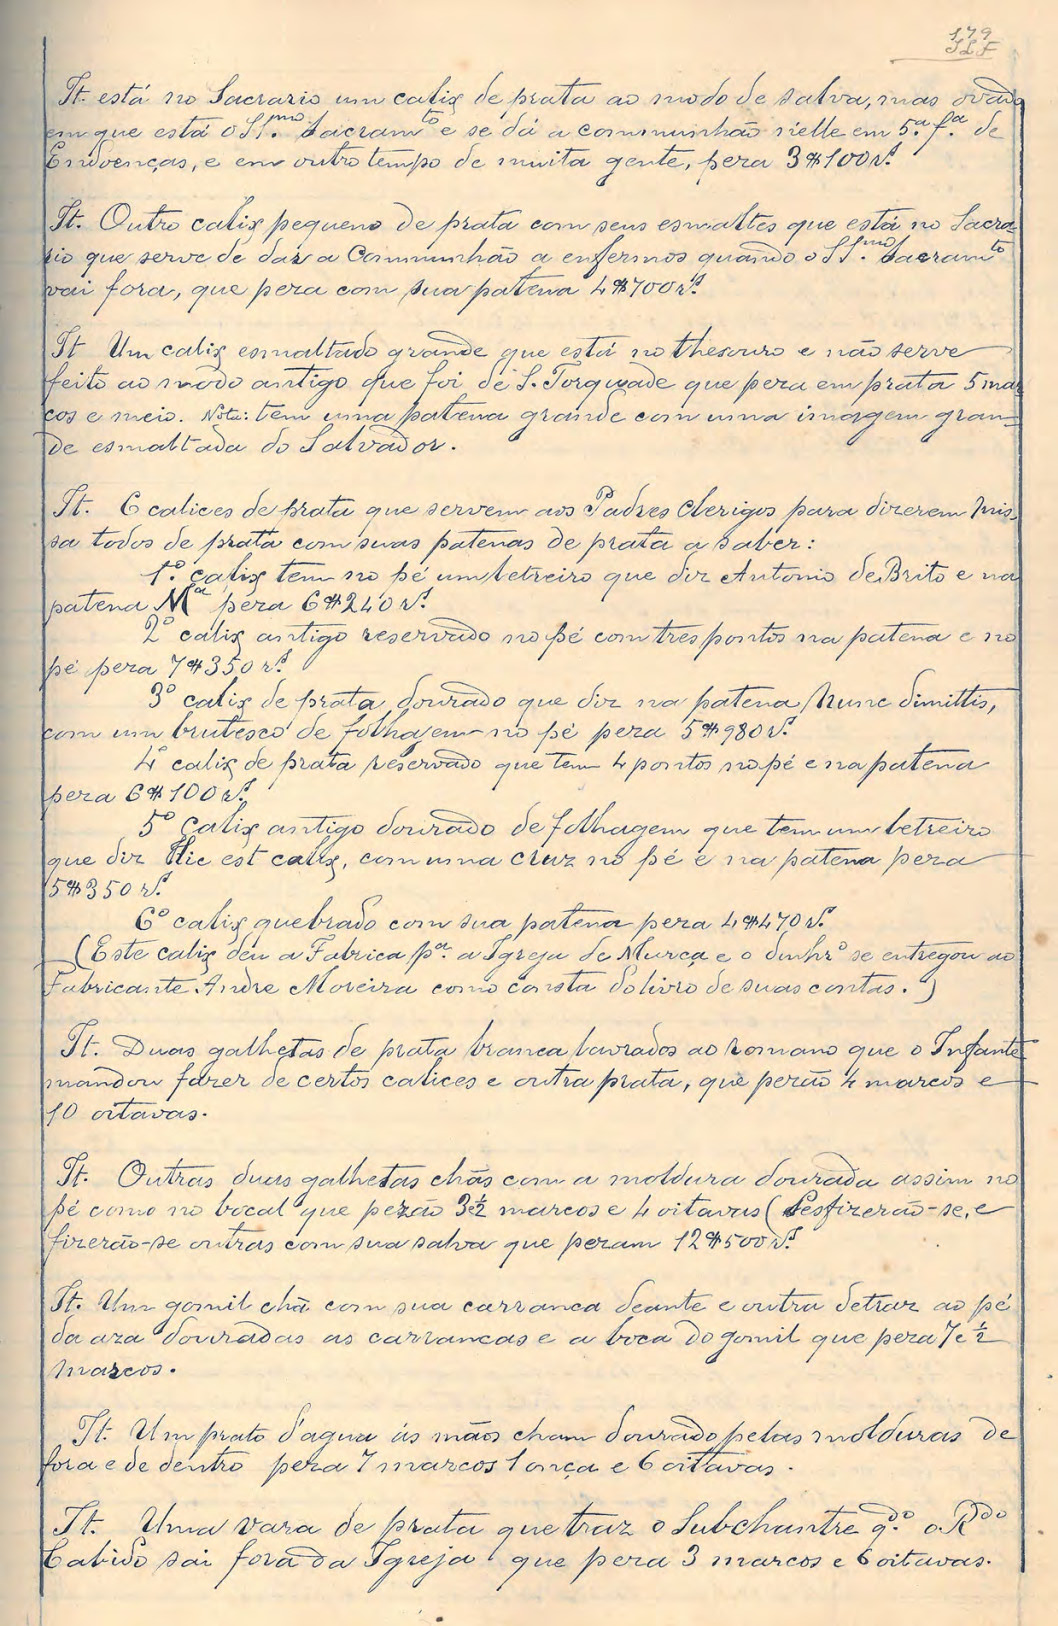 179
SLF
It. está no Sacrario um calix de prata ao modo de salva, mas ovado
em que está o SS.mo Sacram.to e se dá a communhão n'elle em 5.ª f.ª de
Endoenças, e em outro tempo de muita gente, peza 3$100 rs.
It. Outro calix pequeno de prata com seus esmaltes que está no Sacra
rio que serve de dar a Communhão a enfermos quando o SS.mo Sacram.to
vai fora, que peza com sua patena 4$700 rs.
It Um calix esmaltado grande que está no thesouro e não serve
feito ao modo antigo que foi de S. Torquade que peza em prata 5 mar
cos e meio. Nota: tem uma patena grande com uma imagem gran=
de esmaltada do Salvador.
It. 6 calices de prata que servem aos Padres Clerigos para dizerem Mis-
sa todos de prata com suas patenas de prata a saber:
1.º calix tem no pé um letreiro que diz Antonio de Brito e na
patena M.ª peza 6$240 rs.
2º calix antigo reservado no pé com tres pontos na patena e no
pé peza 7$350 rs.
3º calix de prata dourado que diz na patena Nunc dimittis,
com um brutesco de folhagem no pé peza 5$980 rs.
4º calix de prata reservado que tem 4 pontos no pé e na patena
peza 6$100 rs.
5º Calix antigo dourado de folhagem que tem um letreiro
que diz Hic est calix, com uma cruz no pé e na patena peza
5$350 rs.
6º calix quebrado com sua patena peza 4$470 rs.
(Este calix deu a Fabrica p.ª a Igreja de Murça e o dinhr.º se entregou ao
Fabricante Andre Moreira como consta do livro de suas contas.)
It. Duas galhetas de prata branca lavrados ao romano que o Infante
mandou fazer de certos calices e outra prata, que pezão 4 marcos e
10 oitavas.
It. Outras duas galhetas chãs com a moldura dourada assim no
pé como no bocal que pezão 3 e ½ marcos e 4 oitavas (Desfizerão-se, e
fizerão-se outras com sua salva que pezam 12$500 rs.
It. Um gomil chã com sua carranca deante e outra detraz ao pé
da aza douradas as carrancas e a boca do gomil que peza 7 e ½
marcos.
It. Um prato d'agua ás mãos cham dourado pelas molduras de
fora e de dentro peza 7 marcos 1 onça e 6 oitavas.
It. Uma vara de prata que traz o Subchantre q.do o R.do
Cabido sai fora da Igreja que peza 3 marcos e 6 oitavas.